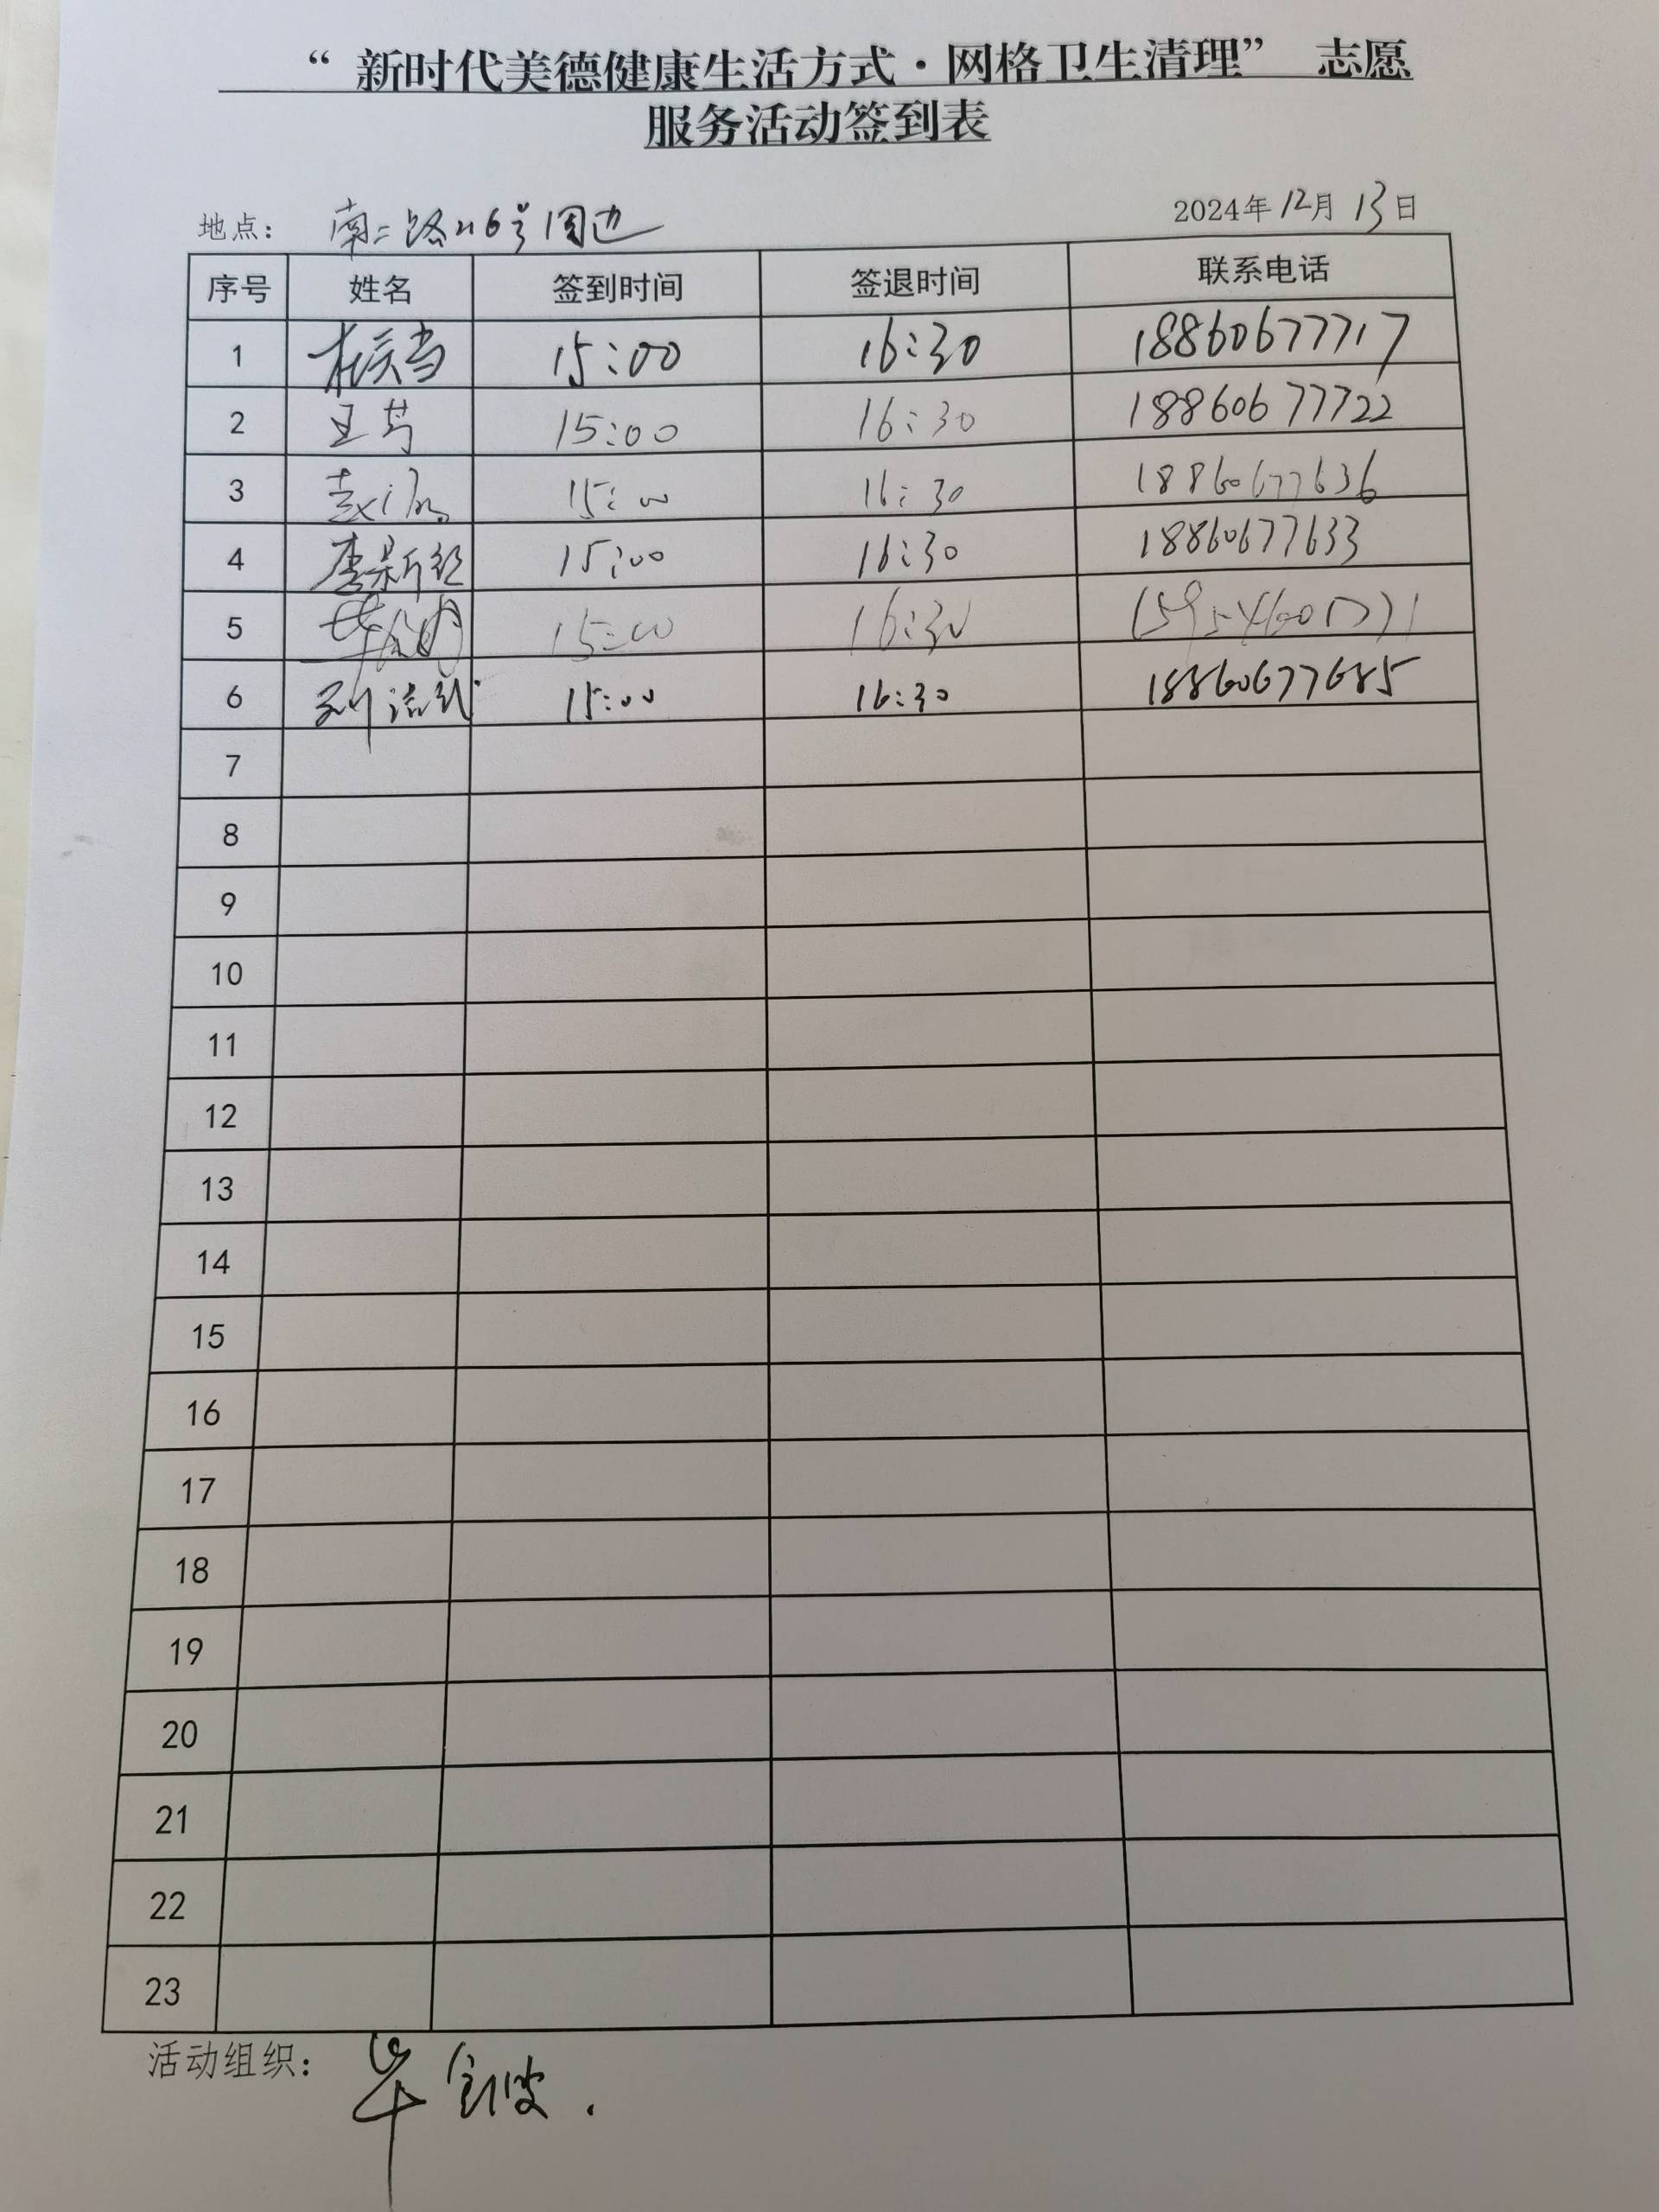 “新时代美德健康生活方式·网格卫生清理” 志愿
服务活动签到表
地点： 南二路216号周边 2024年12月13日
序号 姓名 签到时间 签退时间 联系电话
1 15:00 16:30 18860677717
2 王芳 15:00 16:30 18860677722
3 15:00 16:30 18860677636
4 李新 15:00 16:30 18860677633
5 15:00 16:30
6 15:00 16:30 18860677685
7
8
9
10
11
12
13
14
15
16
17
18
19
20
21
22
23
活动组织：